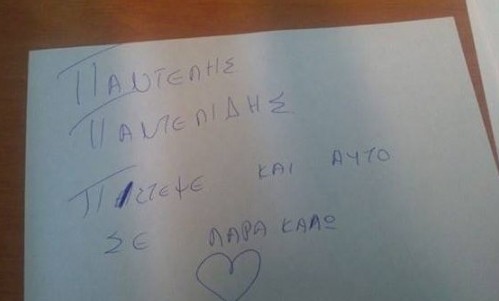 ΠΑΝΤΕΛΗΣ
ΠΑΝΤΕΛΙΔΗΣ
ΠΙΣΤΕΨΕ ΚΑΙ ΑΥΤΟ
ΣΕ ΠΑΡΑΚΑΛΩ